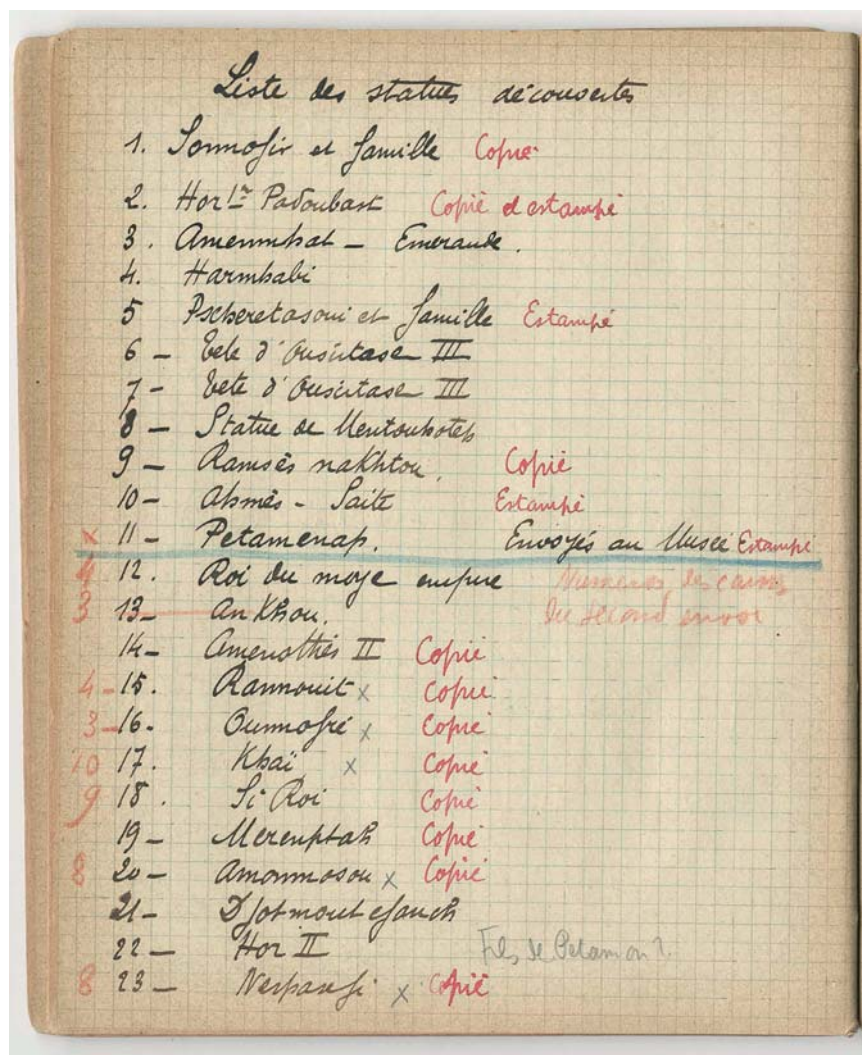 Liste des statues découvertes
1. Sonnofir et famille Copié
2. Hor Ier Padoubast Copié et estampé
3. Amenmhat - Emeraude.
4. Harmhabi
5 Psheretasoui et famille Estampé
6 - Tete d'Ousirtasen III
7 - Tete d'Ousirtasen III
8 - Statue de Mentouhotep
9 - Ramsès nakhtou. Copié
10 - Ahmès - Saite Estampé
x 11 - Petamenap. Envoyés au Musée Estampé
12. Roi du moye empire Numeros des caisses
3 13 - Ankhou. du second envoi
14 - Amenothès II Copié
4 - 15. Rannouit x Copié
3 - 16. Ounnofré x Copié
10 17. Khaï x Copié
9 18. Si Roi Copié
19 - Merenptah Copié
8 20 - Amonmosou x Copié
21 - Djotmoutefanch
22 - Hor II Fils de Petamon?
8 23 - x Copié